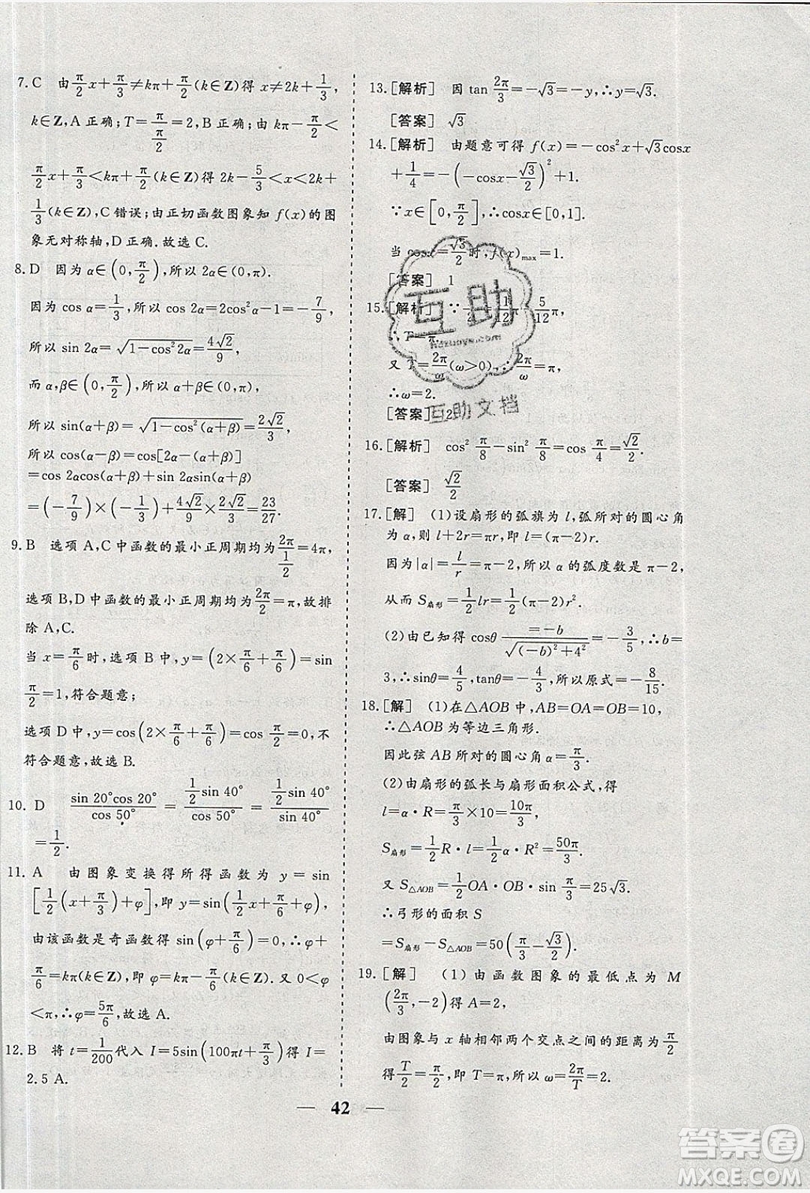 7. C 由π/2 x+π/3≠kπ+π/2(k∈Z)得 x≠2k+1/3,
k∈Z,A 正确;T=π/(π/2)=2,B 正确;由 kπ-π/2<
π/2 x+π/3<kπ+π/2(k∈Z)得 2k-5/3<x<2k+
1/3(k∈Z),C 错误;由正切函数图象知 f(x)的图
象无对称轴,D 正确.故选 C.
8. D 因为 α∈(0,π/2),所以 2α∈(0,π).
因为 cos α=1/3,所以 cos 2α=2cos²α-1=-7/9,
所以 sin 2α=√(1-cos²2α)=4√2/9,
而 α,β∈(0,π/2),所以 α+β∈(0,π),
所以 sin(α+β)=√(1-cos²(α+β))=2√2/3,
所以 cos(α-β)=cos[2α-(α+β)]
=cos 2αcos(α+β)+sin 2αsin(α+β)
=(-7/9)×(-1/3)+4√2/9×2√2/3=23/27.
9. B 选项 A,C 中函数的最小正周期均为2π/(1/2)=4π,
选项 B,D 中函数的最小正周期均为2π/2=π,故排
除 A,C.
当 x=π/6时,选项 B 中,sin(2×π/6+π/6)=sin
π/2=1,符合题意;
选项 D 中,cos(2×π/6+π/6)=cos π/2=0,不
符合题意,故选 B.
10. D sin 20°cos 20°/cos 50°=(1/2 sin 40°)/cos 50°=(1/2 sin 40°)/sin 40°
=1/2.
11. A 由图象变换得所得函数为 y=sin
[1/2(x+π/3)+φ]=sin(1/2 x+φ+π/6),
由该函数是奇函数得 sin(φ+π/6)=0,∴φ+
π/6=kπ(k∈Z),即 φ=kπ-π/6(k∈Z).又 0<φ
<π,∴φ=5π/6.故选 A.
12. B 将 t=1/200代入 I=5sin(100πt+π/3)得 I=
2.5 A.
13. [解析] 因 tan 2π/3=-√3=-y,∴y=√3.
[答案] √3
14. [解析] 由题意可得 f(x)=-cos²x+√3cosx
+1/4=-(cosx-√3/2)²+1.
∵x∈[0,π/2],∴cosx∈[0,1].
当 cosx=√3/2时,f(x)max=1.
[答案] 1
15. [解析] 5/12 π,
∴T=π.
又 T=2π/ω(ω>0)=π,
∴ω=2.
[答案] 2
16. [解析] cos² π/8-sin² π/8=cos π/4=√2/2.
[答案] √2/2
17. [解] (1)设扇形的弧旗为 l,弧所对的圆心角
为 α,则 l+2r=πr,即 l=(π-2)r.
因为|α|=l/r=π-2,所以 α 的弧度数是 π-2,
从而 S扇形=1/2 lr=1/2(π-2)r².
(2)由已知得 cosθ=-b/√((-b)²+4²)=-3/5,∴b=
3,∴sinθ=4/5,tanθ=-4/3,所以原式=-8/15.
18. [解] (1)在△AOB 中,AB=OA=OB=10,
∴△AOB 为等边三角形.
因此弦 AB 所对的圆心角 α=π/3.
(2)由扇形的弧长与扇形面积公式,得
l=α·R=π/3×10=10π/3,
S扇形=1/2 R·l=1/2 α·R²=50π/3.
又 S△AOB=1/2 OA·OB·sin π/3=25√3.
∴弓形的面积 S
=S扇形-S△AOB=50(π/3-√3/2).
19. [解] (1)由函数图象的最低点为 M
(2π/3,-2)得 A=2,
由图象与 x 轴相邻两个交点之间的距离为π/2
得T/2=π/2,即 T=π,所以 ω=2π/T=2π/π=2.
42
互助
互助文档
答案圈
MXQE.COM